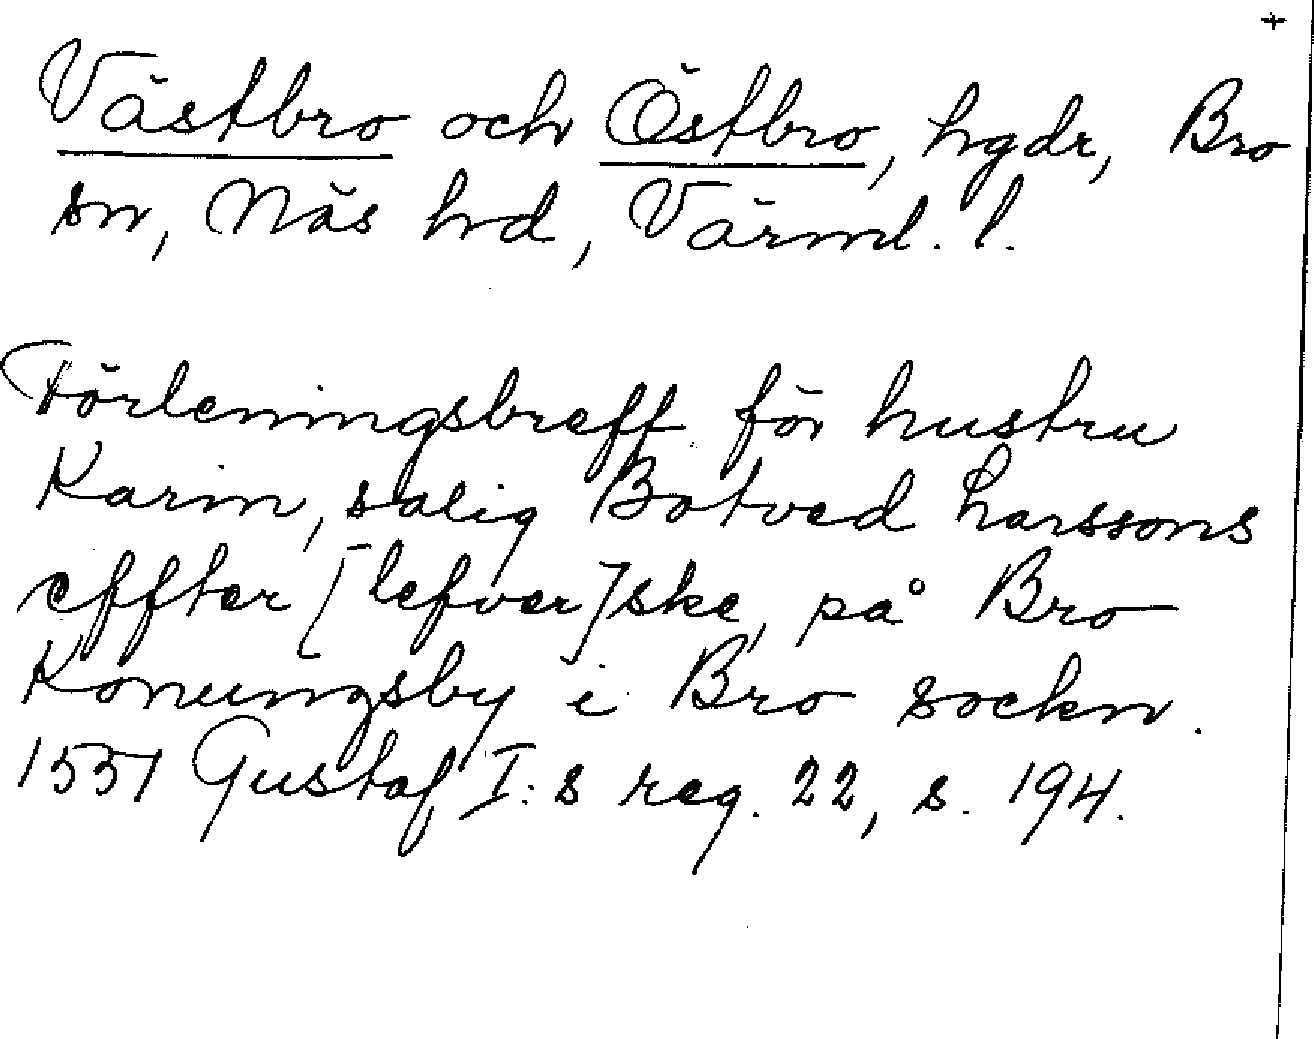 +
Västbro och Östbro, hgdr, Bro
sn, Näs hd, Värml. l.
Förleningsbreff för hustru
Karin, salig Botved Larssons
effter [lefver]ske, på Bro
Konungsby i Bro sockn.
1551 Gustaf I:s reg. 22, s. 194.